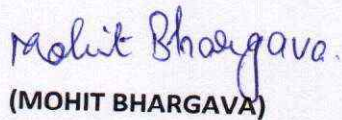 Mohit Bhargava.
(MOHIT BHARGAVA)